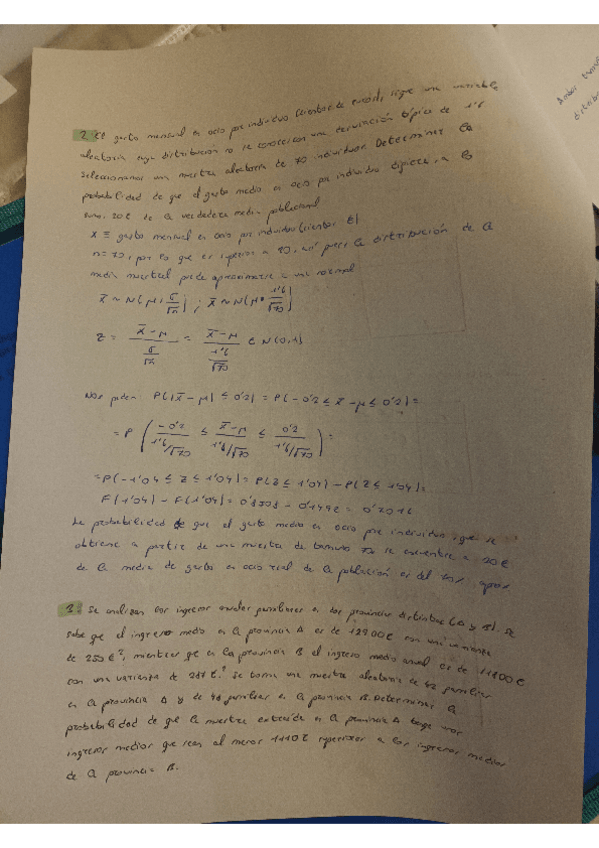 2. El gasto mensual en ocio por individuo (cientos de euros), sigue una variable
aleatoria cuya distribución no se conoce con una desviación típica de 1'6
seleccionamos una muestra aleatoria de 70 individuos. Determinar la
probabilidad de que el gasto medio en ocio por individuo a lo
sumo, 20€ de la verdadera media poblacional
X ≡ gasto mensual en ocio por individuo (cientos €)
n=70, por lo que es superior a 30, así pues la distribución de la
media muestral puede aproximarse a una normal
x̄ ~ N(μ; σ/√n) ; x̄ ~ N(μ; 1'6/√70)
z = (x̄-μ)/(σ/√n) = (x̄-μ)/(1'6/√70) ∈ N(0,1)
Nos piden P(|x̄-μ| ≤ 0'2) = P(-0'2 ≤ x̄-μ ≤ 0'2) =
= P(-0'2/(1'6/√70) ≤ (x̄-μ)/(1'6/√70) ≤ 0'2/(1'6/√70)) =
= P(-1'04 ≤ z ≤ 1'04) = P(z ≤ 1'04) - P(z ≤ 1'04) =
F(1'04) - F(1'04) = 0'8508 - 0'1492 = 0'7016
La probabilidad de que el gasto medio en ocio por individuo, que se
obtiene a partir de una muestra de tamaño 70 se encuentre a 20€
de la media de gasto en ocio real de la población es del 70% aprox
3. Se analizan los ingresos anuales familiares en dos provincias distintas (A y B). Se
sabe que el ingreso medio en la provincia A es de 12900€ con una varianza
de 250€², mientras que en la provincia B el ingreso medio anual es de 11800€
con una varianza de €². Se toma una muestra aleatoria de 42 familias
en la provincia A y de familias en la provincia B. Determinar la
probabilidad de que la muestra extraída en la provincia A tenga unos
ingresos medios que sean al menos 1110€ superiores a los ingresos medios
de la provincia B.